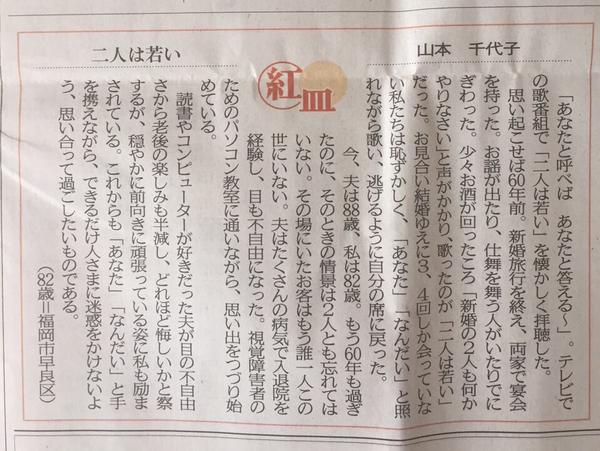 紅皿
二人は若い
山本 千代子
「あなたと呼べば あなたと答える〜」。テレビで
の歌番組で「二人は若い」を懐かしく拝聴した。
思い起こせば60年前。新婚旅行を終え、両家で宴会
を持った。お謡が出たり、仕舞を舞う人がいたりでに
ぎわった。少々お酒が回ったころ「新婚の2人も何か
やりなさい」と声がかかり、歌ったのが「二人は若い」
だった。お見合い結婚ゆえに3、4回しか会っていな
い私たちは恥ずかしく、「あなた」「なんだい」と照
れながら歌い、逃げるように自分の席に戻った。
今、夫は88歳、私は82歳。もう60年も過ぎ
たのに、そのときの情景は2人とも忘れては
いない。その場にいたお客はもう誰一人この
世にいない。夫はたくさんの病気で入退院を
経験し、目も不自由になった。視覚障害者の
ためのパソコン教室に通いながら、思い出をつづり始
めている。
読書やコンピューターが好きだった夫が目の不自由
さから老後の楽しみも半減し、どれほど悔しいかと察
するが、穏やかに前向きに頑張っている姿に私も励ま
されている。これからも「あなた」「なんだい」と手
を携えながら、できるだけ人さまに迷惑をかけないよ
う、思い合って過ごしたいものである。
(82歳=福岡市早良区)